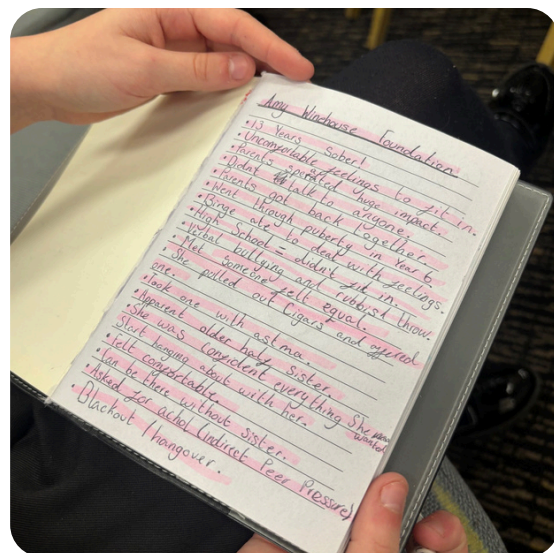 Amy Winehouse Foundation
• 13 Years Sober!
• Uncomfortable feelings to fit in.
• Parents separated huge impact.
• Didn't talk to anyone.
• Parents got back together.
• Went through puberty in Year 6
• Binge ate to deal with feelings.
• High School = didn't fit in.
• Verbal bullying and rubbish throw.
• Met someone felt equal.
• She polled out Cigars and offered
one.
• Took one with astma
• Apparent older half sister.
• She was confident everything She
wanted
Start hanging about with her.
• Felt comfortable.
• Can be there without sister.
• Asked for achol (indirect Peer Pressure)
• Blackout / hangover.